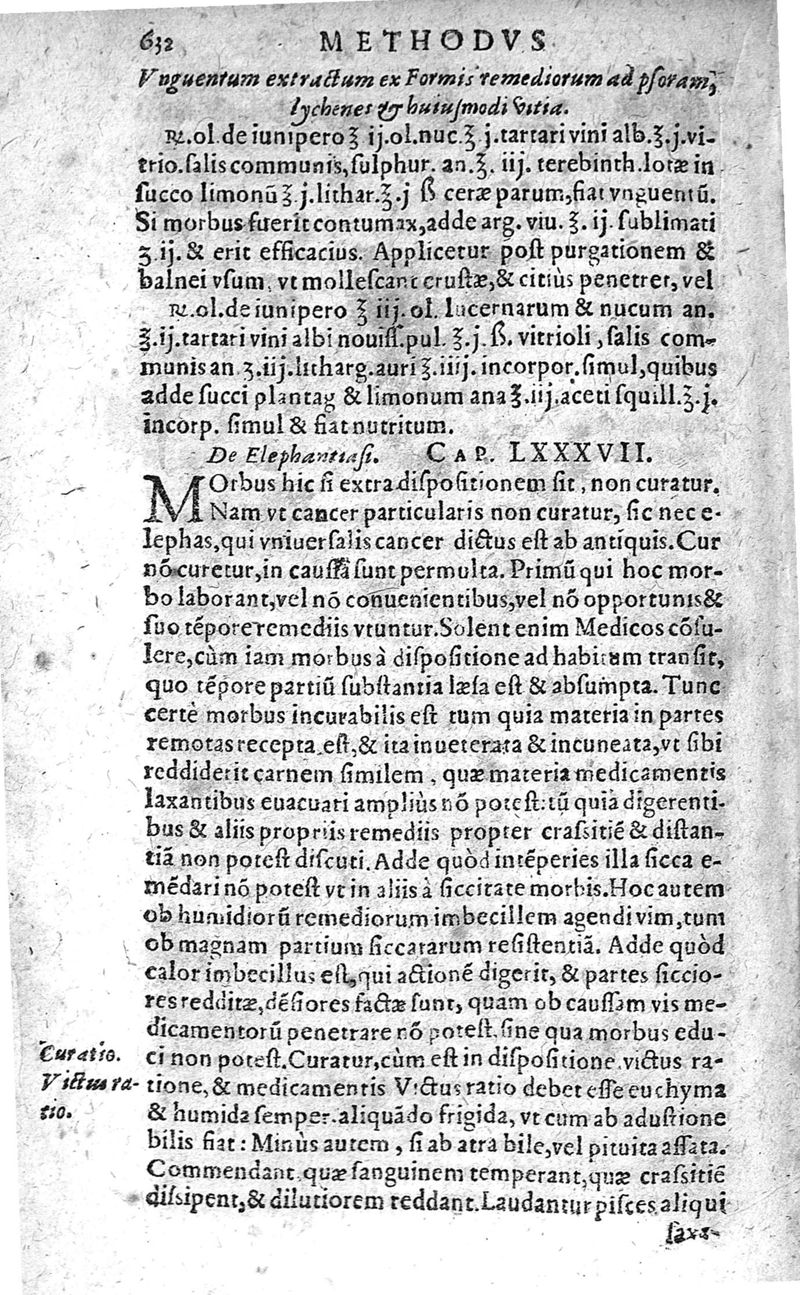 632 METHODVS
Vnguentum extractum ex Formis remediorum ad psoram,
lychenes & huiusmodi vitia.
℞. ol. de iunipero ℥ ij. ol. nuc. ℥ j. tartari vini alb. ℥. j. vi-
trio. salis communis, sulphur. an. ℥. iij. terebinth. lotæ in
succo limonū ℥. j. lithar. ℥. j ß ceræ parum, fiat vnguentū.
Si morbus fuerit contumax, adde arg. viu. ℥. ij. sublimati
ʒ. ij. & erit efficacius. Applicetur post purgationem &
balnei vsum, vt mollescant crustæ, & citiùs penetret, vel
℞. ol. de iunipero ℥ iij. ol. lucernarum & nucum an.
℥. ij. tartari vini albi nouiss. pul. ℥. j. ß. vitrioli, salis com-
munis an. ʒ. iij. litharg. auri ℥. iiij. incorpor. simul, quibus
adde succi plantag & limonum ana ℥. iij. aceti squill. ℥. j.
incorp. simul & fiat nutritum.
De Elephantiasi. CAP. LXXXVII.
MOrbus hic si extra dispositionem sit, non curatur.
Nam vt cancer particularis non curatur, sic nec e-
lephas, qui vniuersalis cancer dictus est ab antiquis. Cur
nō curetur, in caussa sunt permulta. Primū qui hoc mor-
bo laborant, vel nō conuenientibus, vel nō opportunis &
suo tēpore remediis vtuntur. Solent enim Medicos cōsu-
lere, cùm iam morbus à dispositione ad habitum transit,
quo tēpore partiū substantia læsa est & absumpta. Tunc
certè morbus incurabilis est tum quia materia in partes
remotas recepta est, & ita inueterata & incuneata, vt sibi
reddiderit carnem similem, quæ materia medicamentis
laxantibus euacuari ampliùs nō potest: tū quia digerenti-
bus & aliis propriis remediis propter crassitiē & distan-
tiā non potest discuti. Adde quòd intēperies illa sicca e-
mēdari nō potest vt in aliis à siccitate morbis. Hoc autem
ob humidiorū remediorum imbecillem agendi vim, tum
ob magnam partium siccatarum resistentiā. Adde quòd
calor imbecillus est, qui actionē digerit, & partes siccio-
res redditæ, dēsiores factæ sunt, quam ob caussam vis me-
dicamentorū penetrare nō potest, sine qua morbus edu-
Curatio. ci non potest. Curatur, cùm est in dispositione victus ra-
Victus ra- tione, & medicamentis Victus ratio debet esse euchyma
tio. & humida semper, aliquādo frigida, vt cum ab adustione
bilis fiat: Minùs autem, si ab atra bile, vel pituita assata.
Commendant quæ sanguinem temperant, quæ crassitiē
dissipent, & dilutiorem reddant. Laudantur pisces aliqui
saxa-